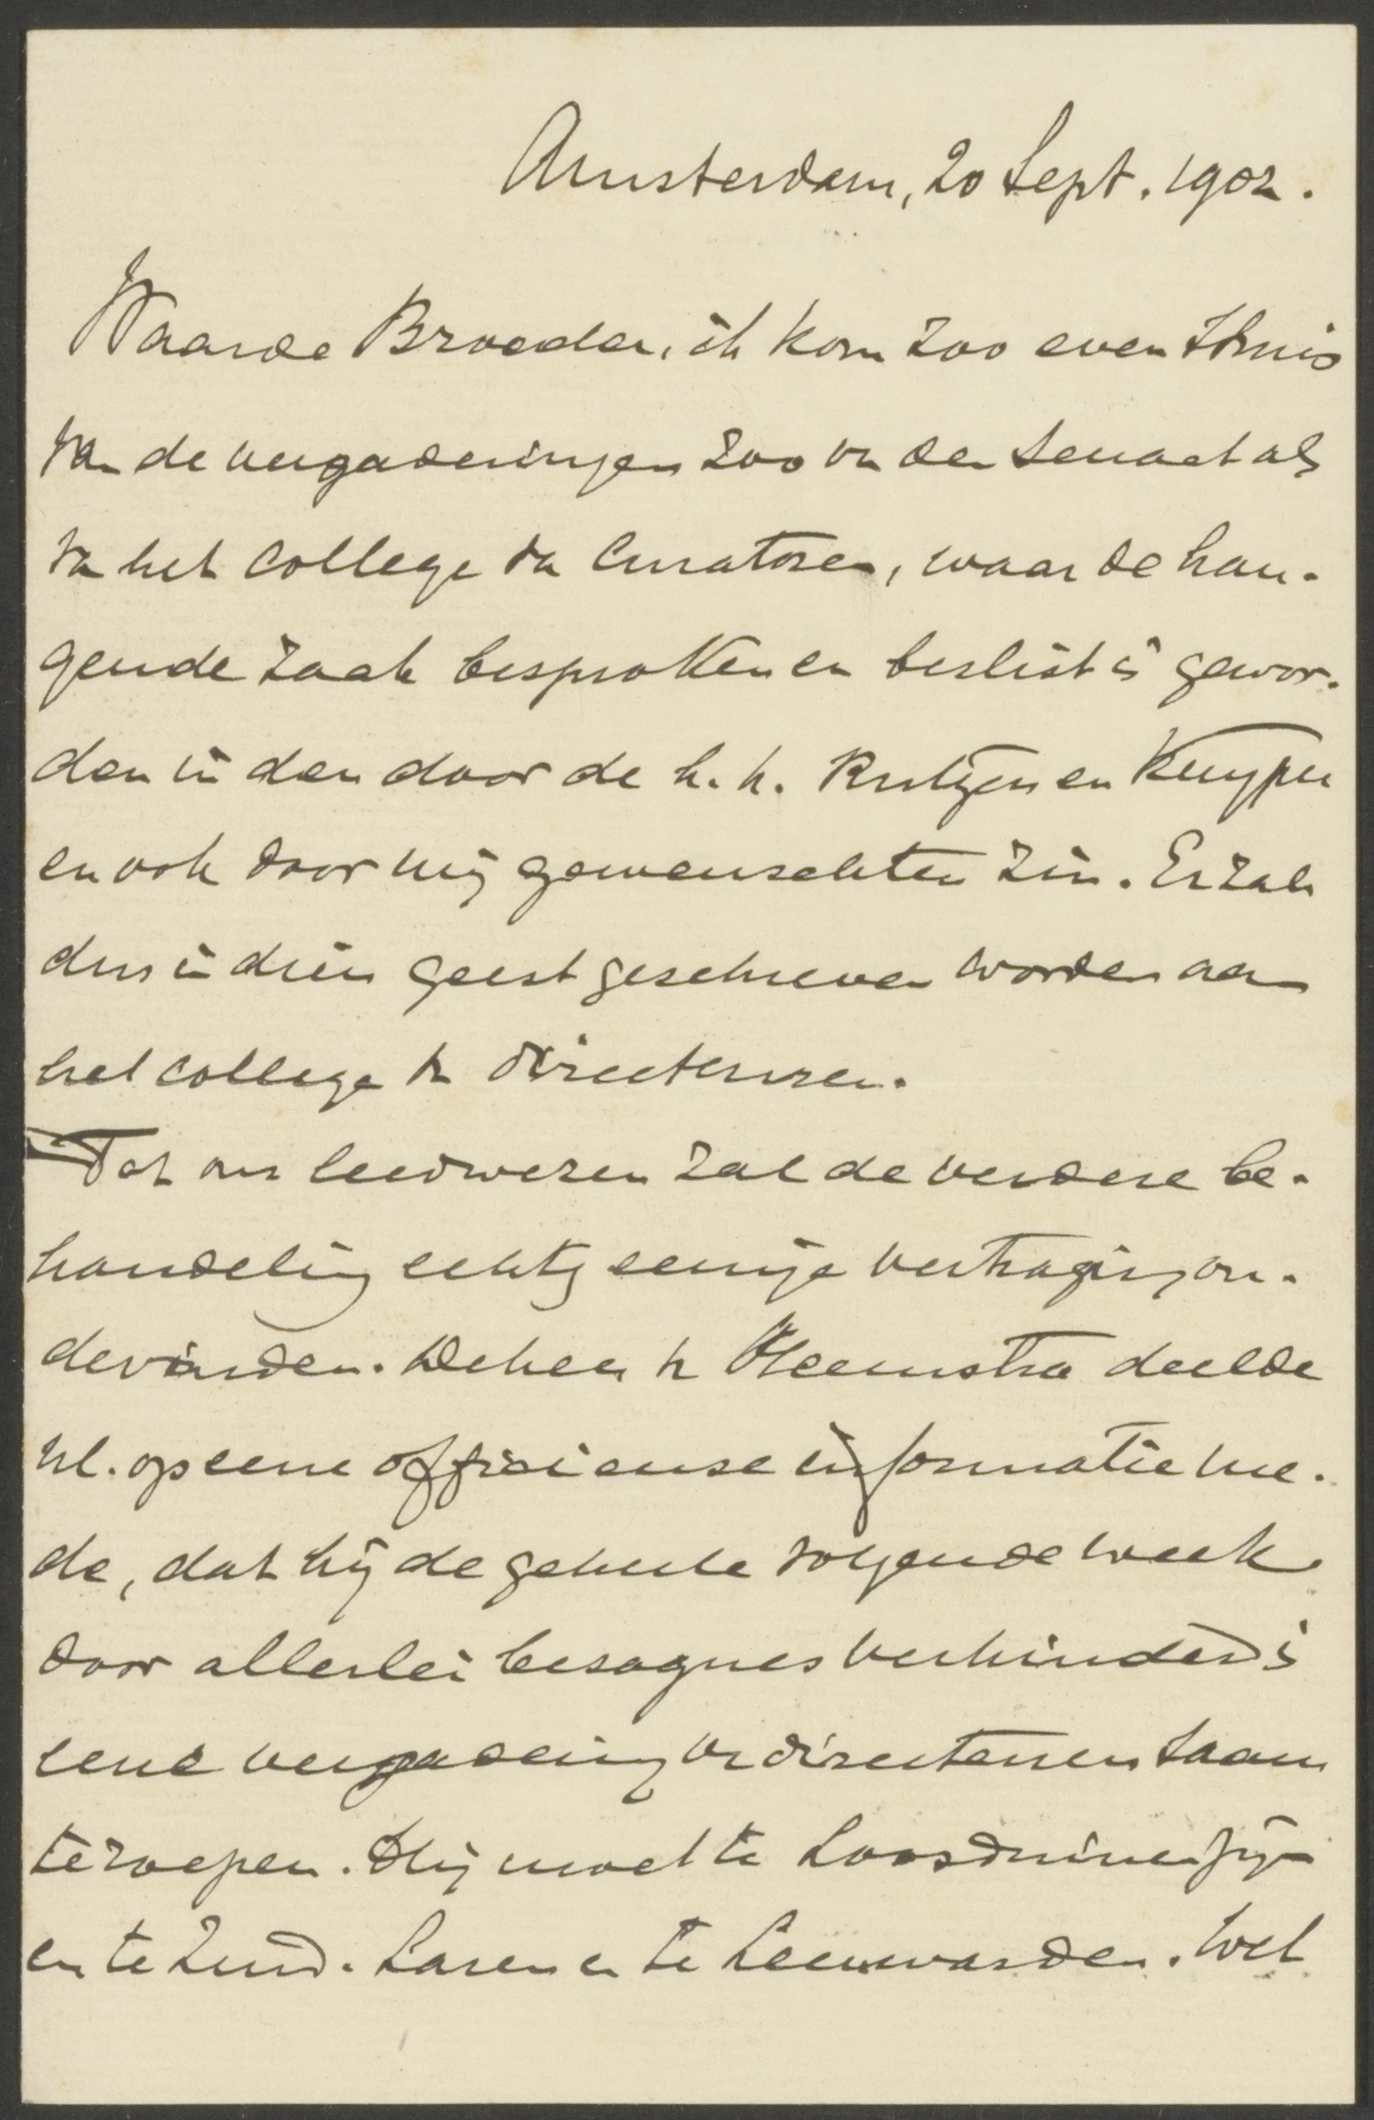 Amsterdam, 20 Sept. 1902.
Waarde Broeder, ik kom zoo even thuis
van de vergaderingen zoo vn den Senaat als
van het College van Curatoren, waar de han-
gende zaak besproken en beslist is gewor-
den in den door de h.h. Rutgers en Kuyper
en ook door mij gewenschten zin. Er zal
dus in dien geest geschreven worden aan
het college vn Directeuren.
Tot ons leedwezen zal de verdere be-
handeling echter eenige vertraging on-
dervinden. De heer v Heemstra deelde
nl. op eene officieuse informatie me-
de, dat hij de geheele volgende week
door allerlei besognes verhinderd is
eene vergadering vn directeuren saam
te roepen. Hij moet te Loosduinen zijn
en te Zuid-Laren en te Leeuwarden. Wel